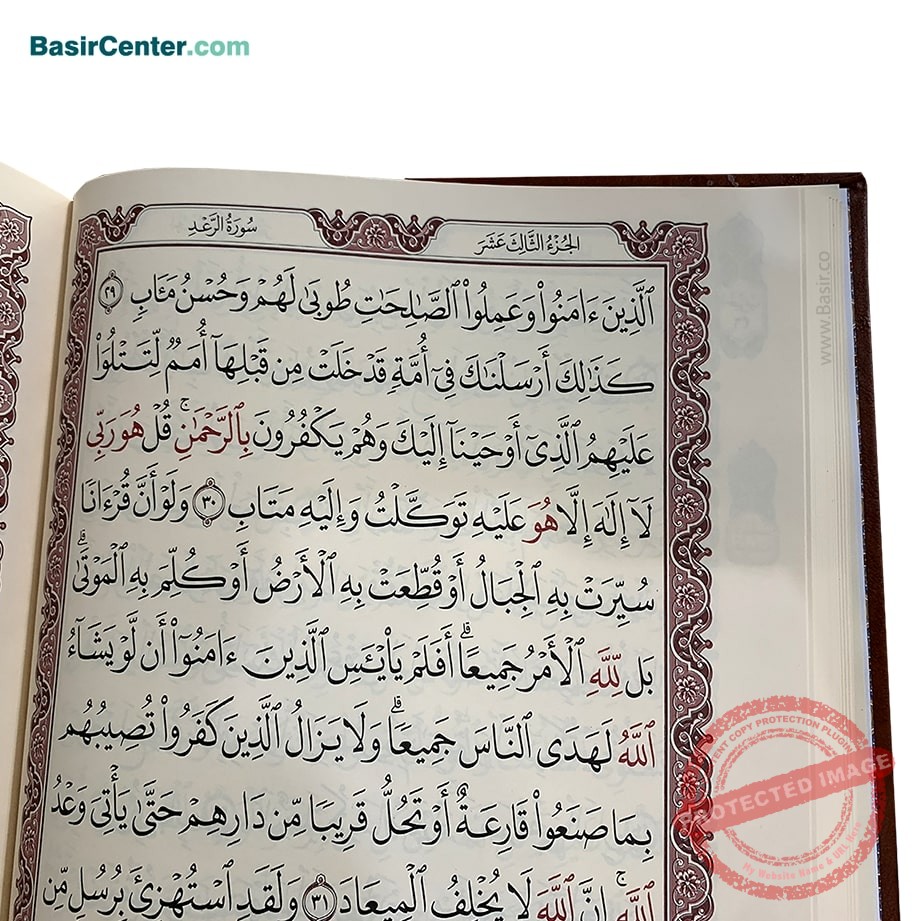 BasirCenter.com
سُورَةُ الرَّعْدِ
الجُزْءُ الثَّالِثَ عَشَرَ
ٱلَّذِينَ ءَامَنُوا۟ وَعَمِلُوا۟ ٱلصَّـٰلِحَـٰتِ طُوبَىٰ لَهُمْ وَحُسْنُ مَـَٔابٍ ٢٩
كَذَٰلِكَ أَرْسَلْنَـٰكَ فِىٓ أُمَّةٍ قَدْ خَلَتْ مِن قَبْلِهَآ أُمَمٌ لِّتَتْلُوَا۟
عَلَيْهِمُ ٱلَّذِىٓ أَوْحَيْنَآ إِلَيْكَ وَهُمْ يَكْفُرُونَ بِٱلرَّحْمَـٰنِ ۚ قُلْ هُوَ رَبِّى
لَآ إِلَـٰهَ إِلَّا هُوَ عَلَيْهِ تَوَكَّلْتُ وَإِلَيْهِ مَتَابِ ٣٠ وَلَوْ أَنَّ قُرْءَانًا
سُيِّرَتْ بِهِ ٱلْجِبَالُ أَوْ قُطِّعَتْ بِهِ ٱلْأَرْضُ أَوْ كُلِّمَ بِهِ ٱلْمَوْتَىٰ ۗ
بَل لِّلَّهِ ٱلْأَمْرُ جَمِيعًا ۗ أَفَلَمْ يَا۟يْـَٔسِ ٱلَّذِينَ ءَامَنُوٓا۟ أَن لَّوْ يَشَآءُ
ٱللَّهُ لَهَدَى ٱلنَّاسَ جَمِيعًا ۗ وَلَا يَزَالُ ٱلَّذِينَ كَفَرُوا۟ تُصِيبُهُم
بِمَا صَنَعُوا۟ قَارِعَةٌ أَوْ تَحُلُّ قَرِيبًا مِّن دَارِهِمْ حَتَّىٰ يَأْتِىَ وَعْدُ
ٱللَّهِ ۚ إِنَّ ٱللَّهَ لَا يُخْلِفُ ٱلْمِيعَادَ ٣١ وَلَقَدِ ٱسْتُهْزِئَ بِرُسُلٍ مِّن
www.Basir.co
COPY PROTECTION PLUGIN
PROTECTED IMAGE
My Website Name & URL Here